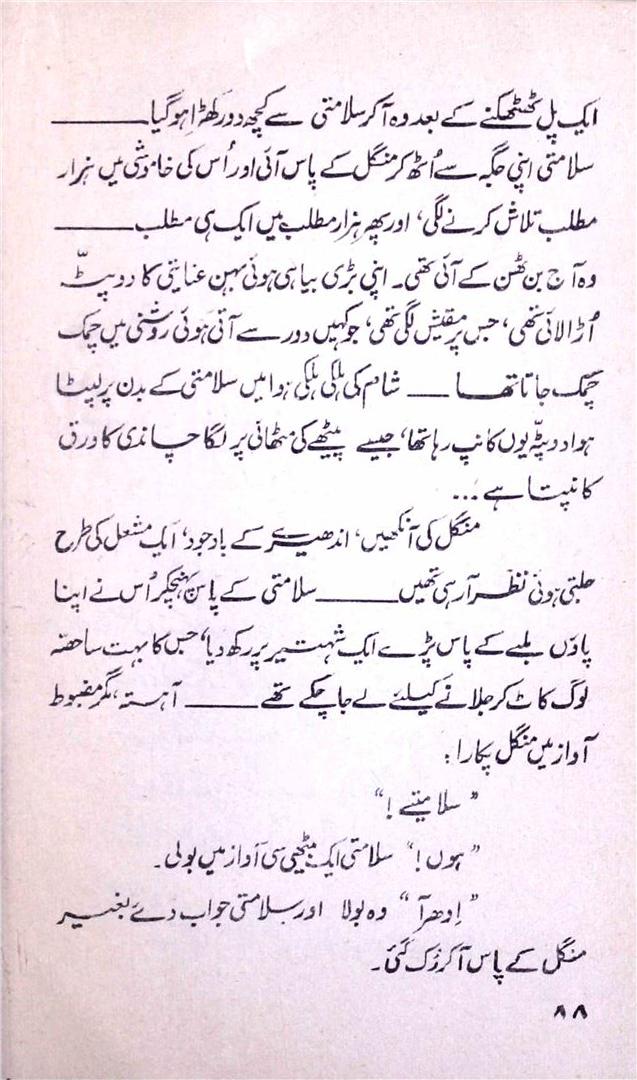 ایک پل ٹھٹھکنے کے بعد وہ آ کر سلامتی سے کچھ دور کھڑا ہو گیا ———
سلامتی اپنی جگہ سے اُٹھ کر منگل کے پاس آئی اور اُس کی خاموشی میں ہزار
مطلب تلاش کرنے لگی، اور پھر ہزار مطلب میں ایک ہی مطلب ———
وہ آج بن ٹھن کے آئی تھی۔ اپنی بڑی بیاہی ہوئی بہن عنایتی کا دوپٹہ
اُڑا لائی تھی، جس پر مقیش لگی تھی، جو کہیں دور سے آتی ہوئی روشنی میں چمک
چمک جاتا تھا —— شام کی ہلکی ہلکی ہوا میں سلامتی کے بدن پر لپٹا
ہوا دوپٹہ یوں کانپ رہا تھا، جیسے پیٹھے کی مٹھائی پر لگا چاندی کا ورق
کانپتا ہے ...
منگل کی آنکھیں، اندھیرے کے باوجود، ایک مشعل کی طرح
جلتی ہوئی نظر آ رہی تھیں ——— سلامتی کے پاس پہنچکر اُس نے اپنا
پاؤں ملبے کے پاس پڑے ایک شہتیر پر رکھ دیا، جس کا بہت سا حصّہ
لوگ کاٹ کر جلانے کیلئے لے جا چکے تھے ——— آہستہ، مگر مضبوط
آواز میں منگل پکارا:
”سلامتے!“
”ہوں!“ سلامتی ایک میٹھی سی آواز میں بولی۔
”اِدھر آ“ وہ بولا اور سلامتی جواب دئے بغیر
منگل کے پاس آ کر رُک گئی۔
۸۸